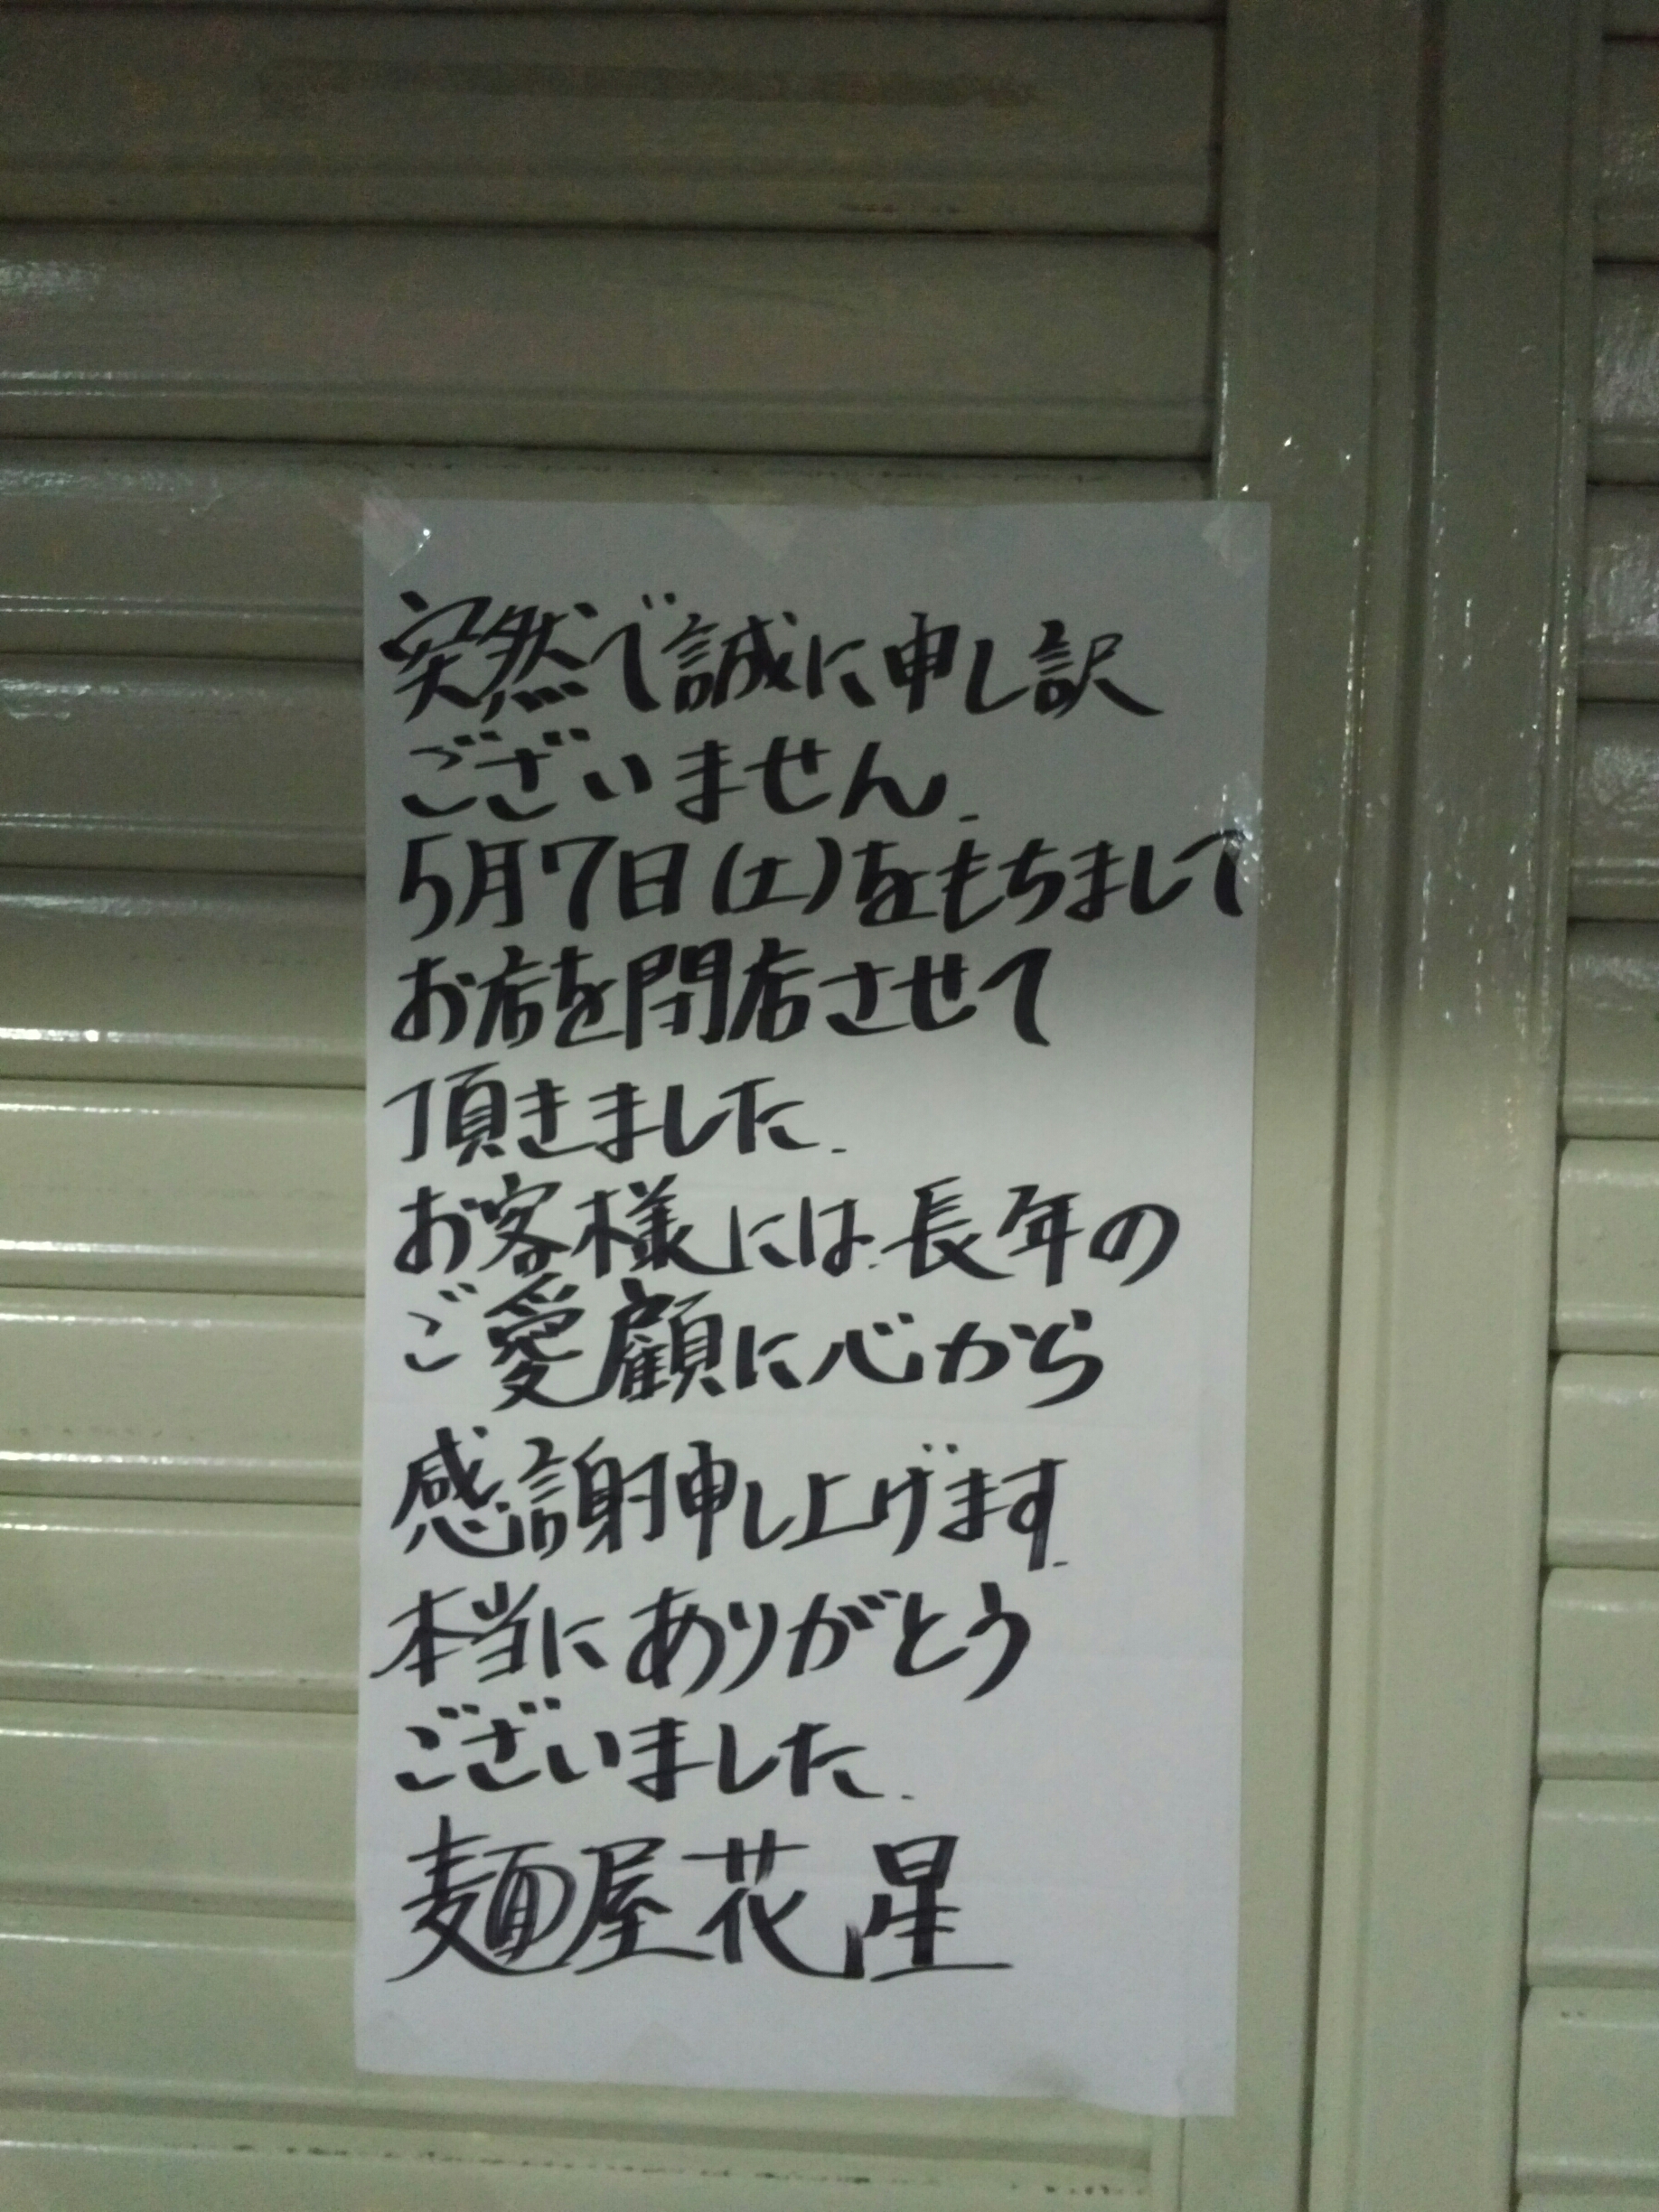 突然で誠に申し訳
ございません.
5月7日(土)をもちまして
お店を閉店させて
頂きました.
お客様には.長年の
ご愛顧に心から
感謝申し上げます.
本当にありがとう
ございました.
麺屋花星